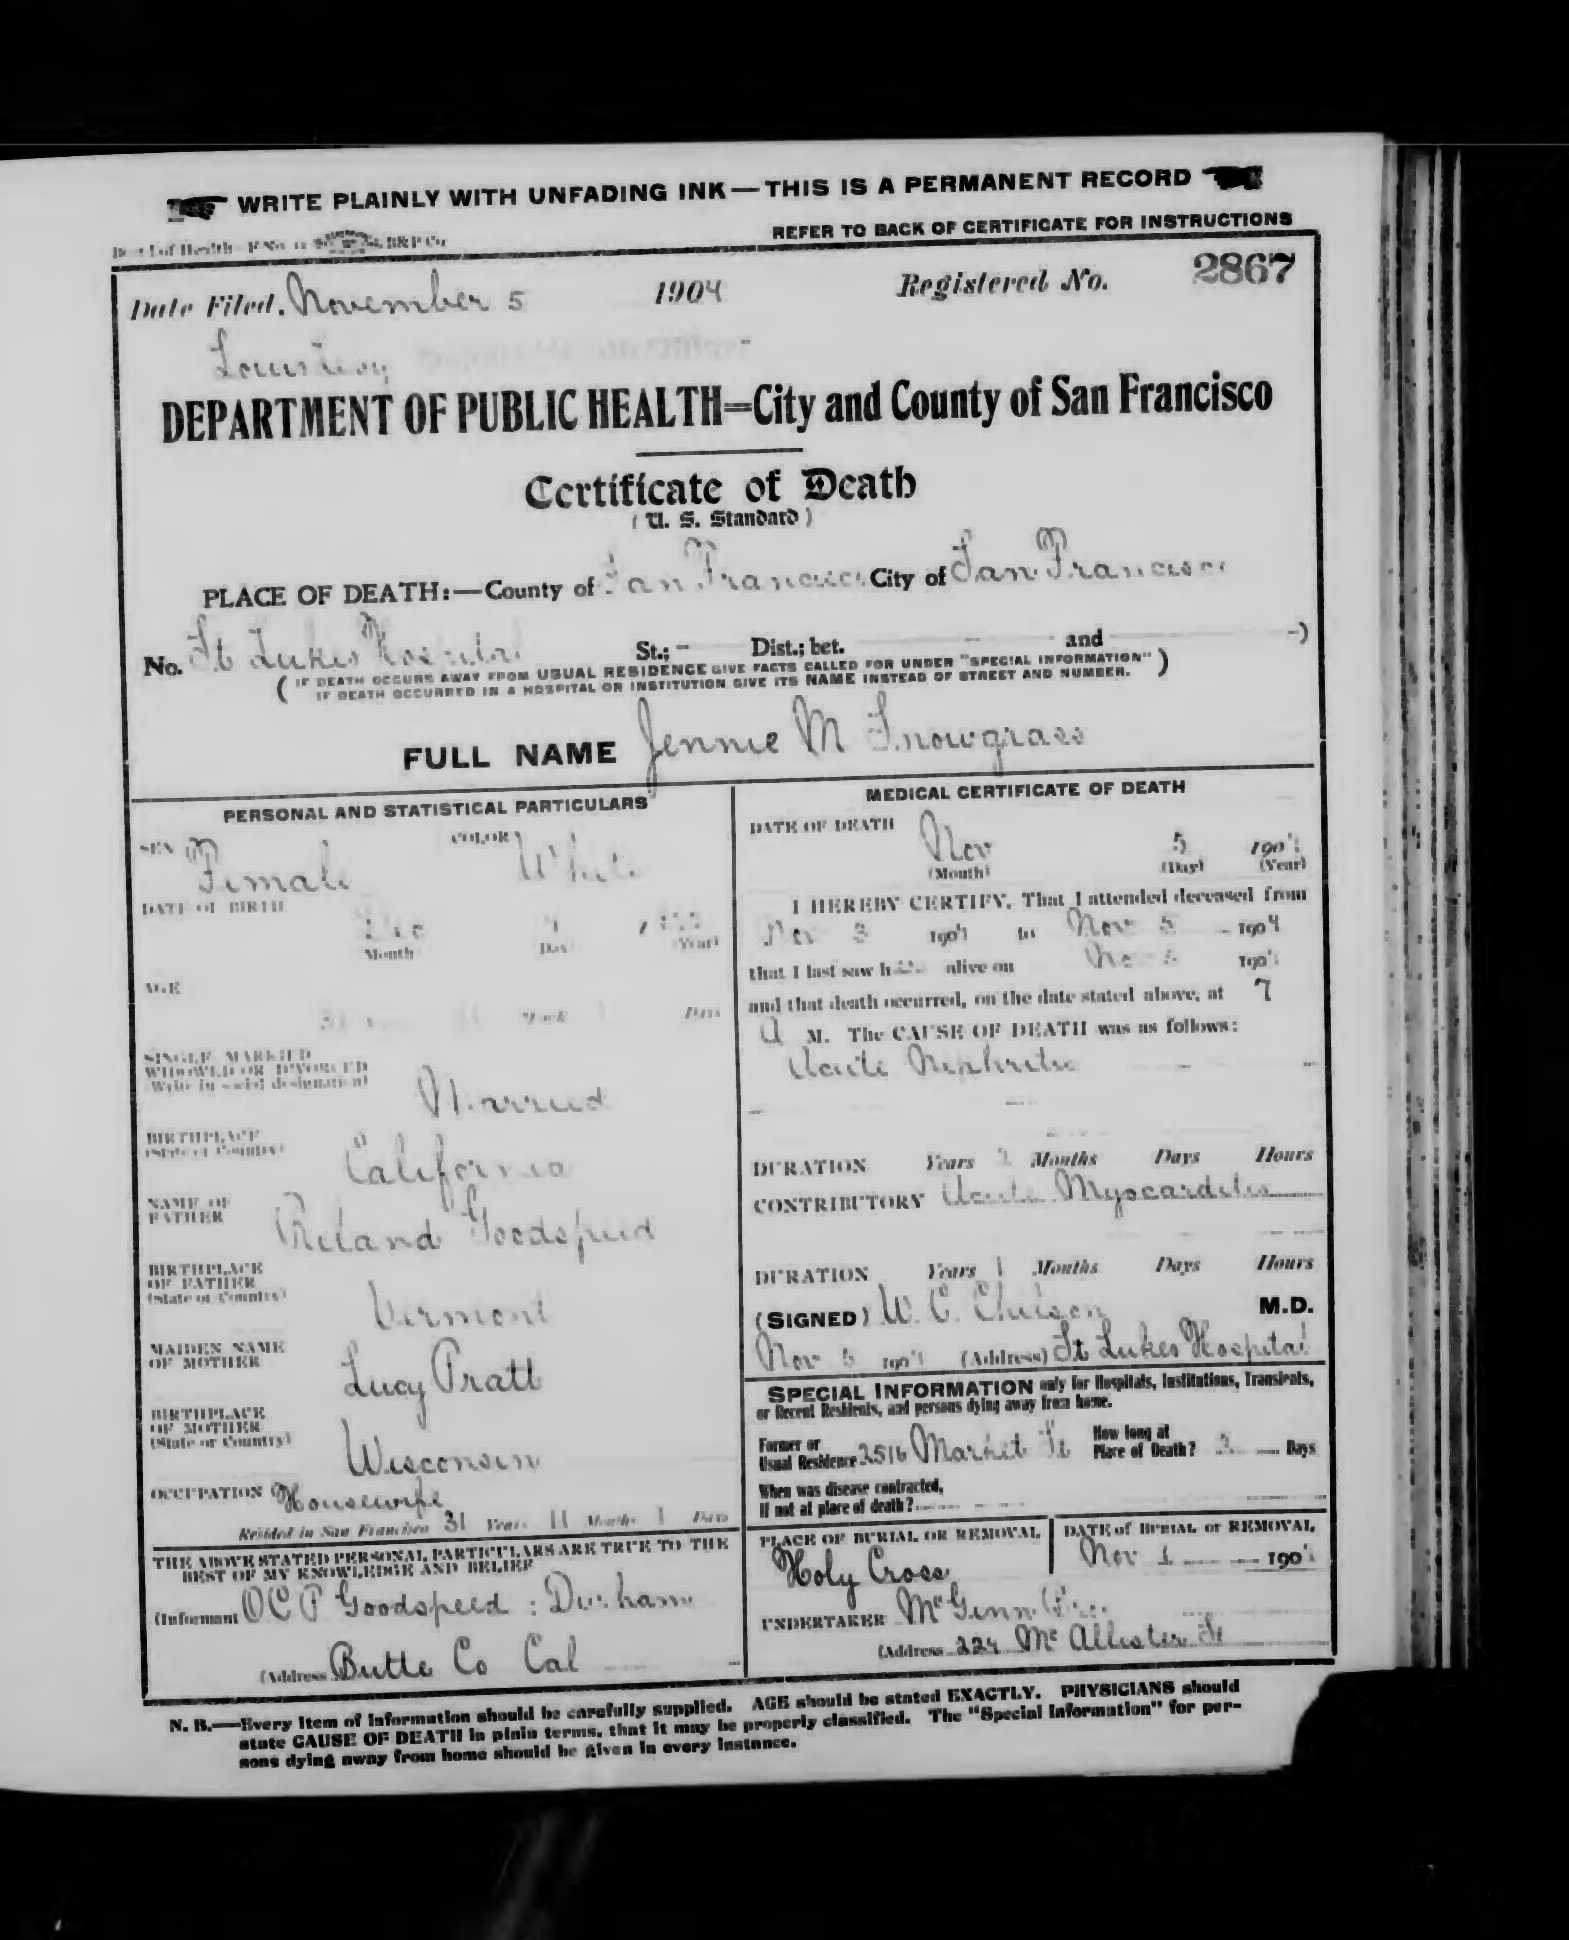 WRITE PLAINLY WITH UNFADING INK — THIS IS A PERMANENT RECORD
REFER TO BACK OF CERTIFICATE FOR INSTRUCTIONS
of Health B&P Co
Date Filed, November 5 1904 Registered No. 2867
Louis Levy
DEPARTMENT OF PUBLIC HEALTH=City and County of San Francisco
Certificate of Death
(U. S. Standard)
PLACE OF DEATH:—County of San Francisco City of San Francisco
No. St Lukes Hospital St.; - Dist.; bet. - and -)
(IF DEATH OCCURS AWAY FROM USUAL RESIDENCE GIVE FACTS CALLED FOR UNDER "SPECIAL INFORMATION")
IF DEATH OCCURRED IN A HOSPITAL OR INSTITUTION GIVE ITS NAME INSTEAD OF STREET AND NUMBER.
FULL NAME Jennie M Snowgrass
PERSONAL AND STATISTICAL PARTICULARS
SEX Female COLOR White
DATE OF BIRTH
Dec
Month Day (Year)
AGE
Month Days
SINGLE, MARRIED
WIDOWED OR DIVORCED
(Write in social designation)
Married
BIRTHPLACE
(State or Country)
California
NAME OF
FATHER
Reland Goodspeed
BIRTHPLACE
OF FATHER
(State or Country)
Vermont
MAIDEN NAME
OF MOTHER
Lucy Pratt
BIRTHPLACE
OF MOTHER
(State or Country)
Wisconsin
OCCUPATION Housewife
Resided in San Francisco 31 Years 11 Months 1 Days
THE ABOVE STATED PERSONAL PARTICULARS ARE TRUE TO THE
BEST OF MY KNOWLEDGE AND BELIEF
(Informant O C P Goodspeed : Durham
(Address Butte Co Cal
MEDICAL CERTIFICATE OF DEATH
DATE OF DEATH
Nov 5 1904
(Month) (Day) (Year)
I HEREBY CERTIFY, That I attended deceased from
Nov 3 1904 to Nov 5 1904
that I last saw her alive on Nov 5 1904
and that death occurred, on the date stated above, at 7
A M. The CAUSE OF DEATH was as follows:
Acute Nephritis
DURATION Years Months Days Hours
CONTRIBUTORY Acute Myocarditis
DURATION Years 1 Months Days Hours
(SIGNED) W. C. M.D.
Nov 5 1904 (Address) St Lukes Hospital
SPECIAL INFORMATION only for Hospitals, Institutions, Transients,
or Recent Residents, and persons dying away from home.
Former or
Usual Residence 2516 Market St
How long at
Place of Death? Days
When was disease contracted,
If not at place of death?
PLACE OF BURIAL OR REMOVAL
Holy Cross
DATE of BURIAL or REMOVAL
Nov 1904
UNDERTAKER McGinn Bros
(Address 224 McAllister St
N. B.—Every item of information should be carefully supplied. AGE should be stated EXACTLY. PHYSICIANS should
state CAUSE OF DEATH in plain terms, that it may be properly classified. The "Special Information" for per-
sons dying away from home should be given in every instance.